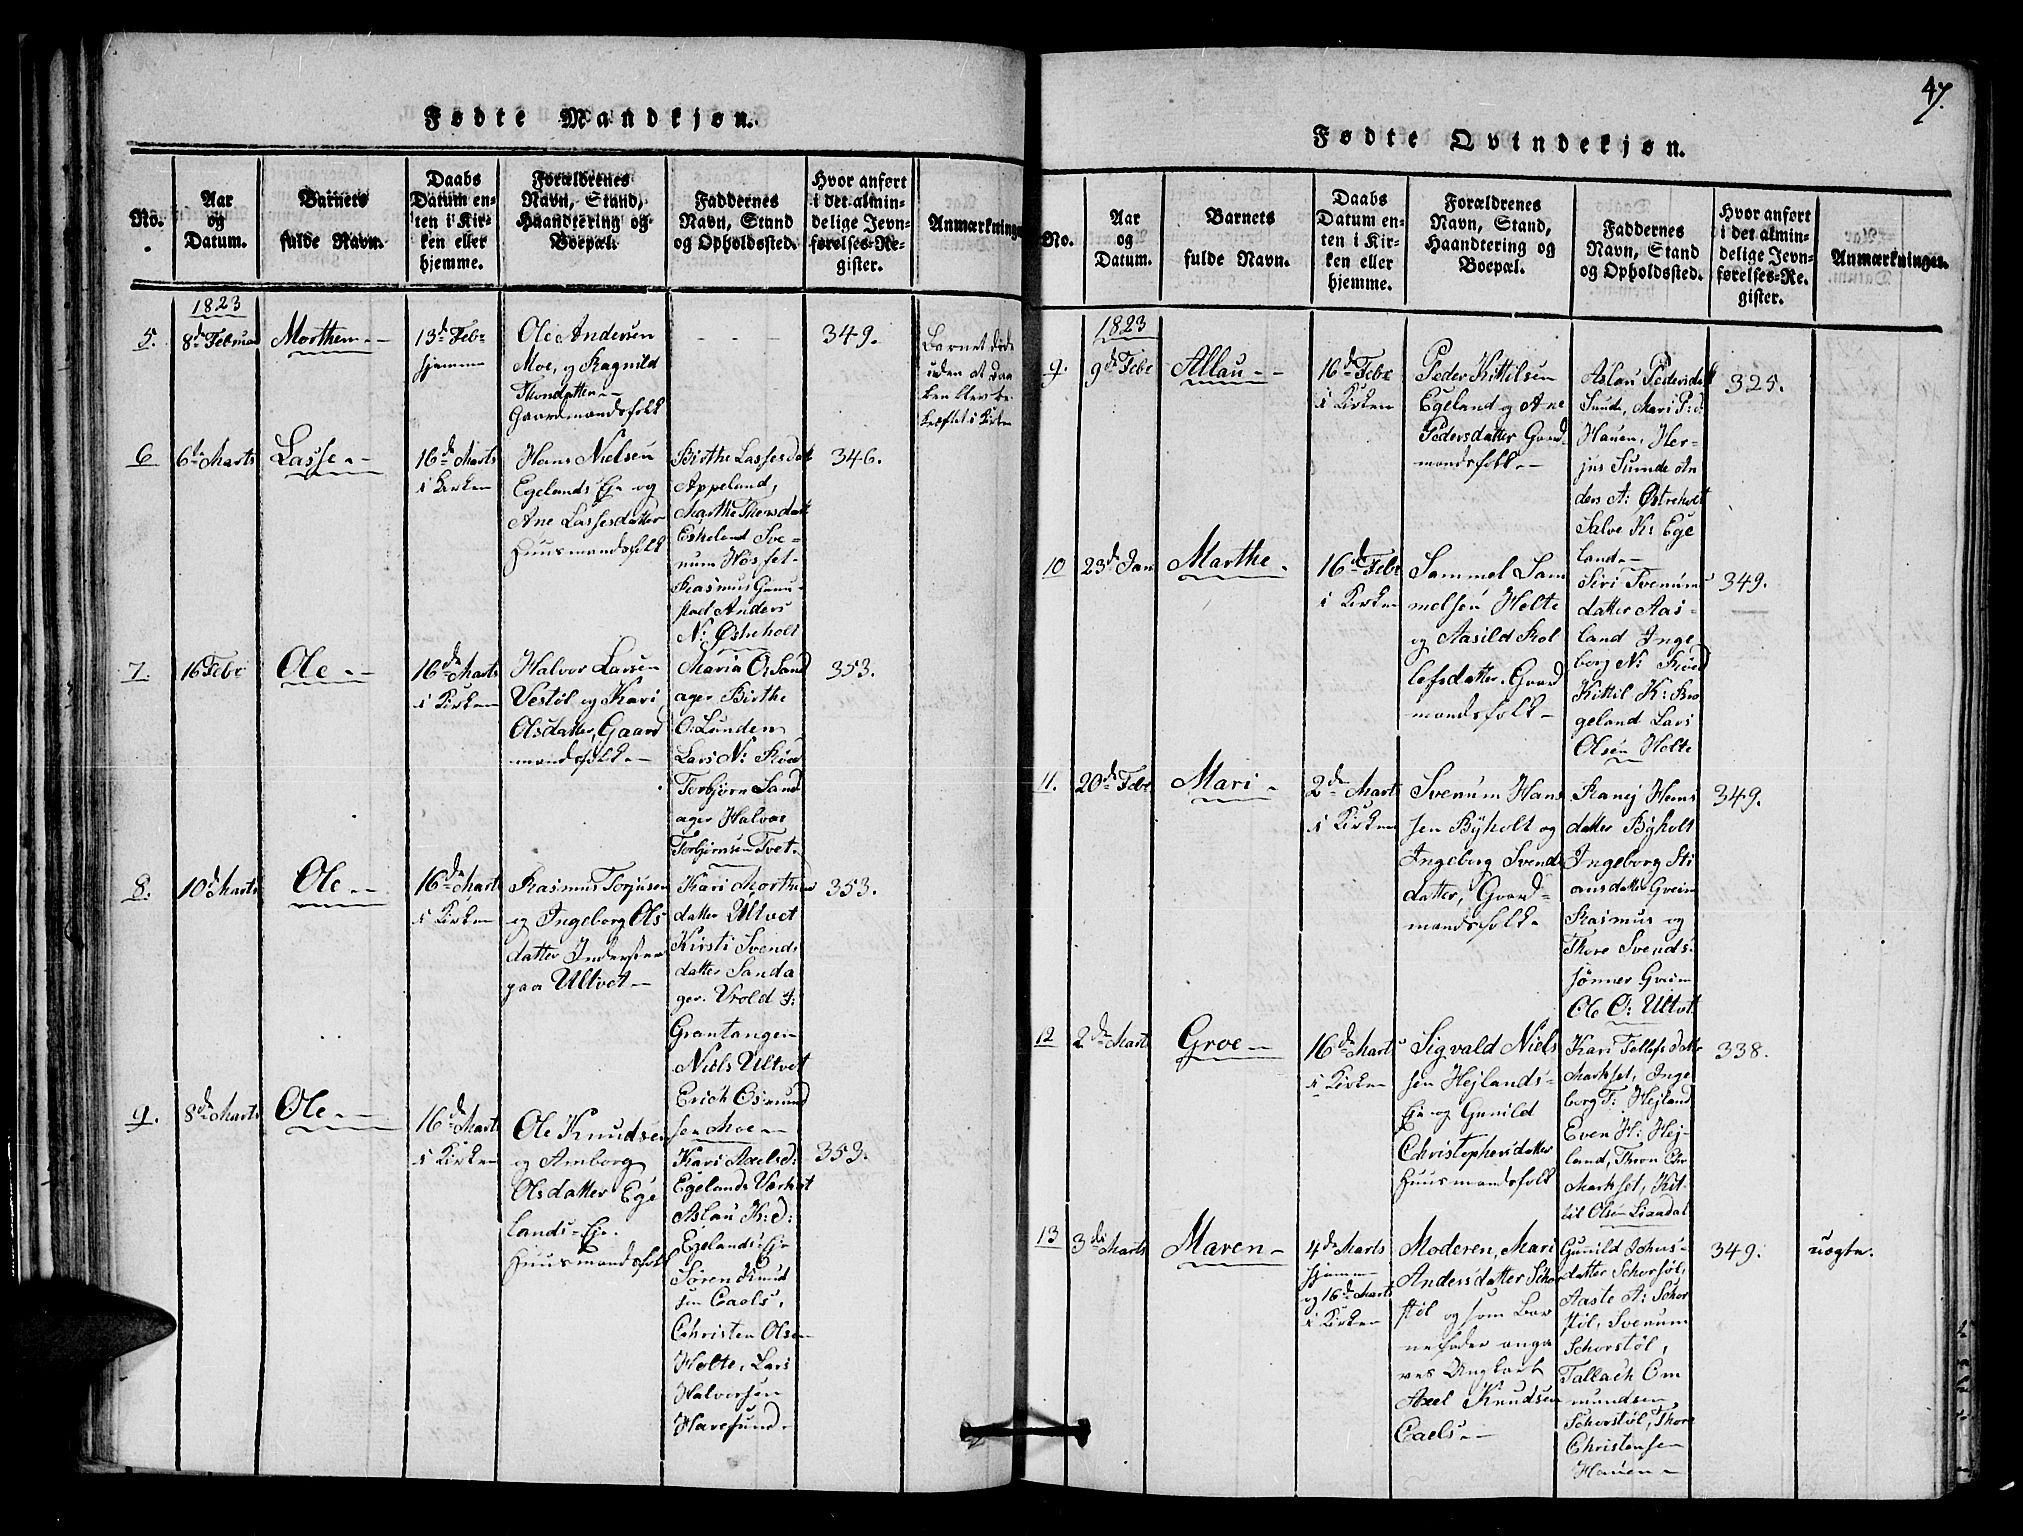 47.
Fødte Mandkjøn.
No.
Aar
og
Datum.
Barnets
fulde Navn.
Daabs
Datum en-
ten i Kir-
ken eller
hjemme.
Forældrenes
Navn, Stand,
Haandtering og
Boepæl.
Faddernes
Navn, Stand
og Opholdssted.
Hvor anført
i det almin-
delige Jevn-
førelses-Re-
gister.
Anmærkninge
1823
5.
8de Februar
Morthen
13de Febr
hjemme
Ole Andersen
Moe, og Ragnild
Thorsdatter
Gaardmandsfolk
349.
Barnet døde
uden at Daa
ben blev be
kræftet i Kirken
6
6te Marts
Lasse
16de Marts
i Kirken
Hans Nielsen
Egelands Eje og
Ane Lassesdatter
Huusmandsfolk
Birthe Lassesdatt
Appeland,
Marthe Thorsdatt
Eskeland Sve-
num Høsset
Rasmus Gunn-
stad Anders
N: Østeholt
346.
7.
16 Febr
Ole
16de Marts
i Kirken
Halvor Larsen
Vestøl og Kari
Olsdatter, Gaard
mandsfolk
Maria O: Sand
ager Birthe
O: Lunden
Lars N: Røed
Torbjørn Sand
ager Halvor
Torbjørnsen Tvet
353.
8.
10de Marts
Ole
16de Marts
i Kirken
Rasmus Torjusen
og Ingeborg Ols
datter Inderster
paa Ultvet
Kari Morthens
datter Ultvet
Kirsti Svends
datter Sanda
ger. Vrold J:
Grantangen
Niels Ultvet
Erich Osmund
sen Moe
353.
9.
8de Marts
Ole
16de Marts
i Kirken
Ole Knudsen
og Amborg
Olsdatter Ege
lands-Eje.
Huusmandsfolk
Kari Axelsd:
Egelands Værket
Aslau K: d:
Egelands-Eje
Søren Knud
sen Caels,
Christen Olsen
Holte, Lars
Halvorsen
Haresund.
353.
Fødte Qvindekjøn.
No.
Aar
og
Datum.
Barnets
fulde Navn.
Daabs
Datum en-
ten i Kir-
ken eller
hjemme.
Forældrenes
Navn, Stand,
Haandtering og
Boepæl.
Faddernes
Navn, Stand
og Opholdssted.
Hvor anført
i det almin-
delige Jevn-
førelses-Re-
gister.
Anmærkninger.
1823
9.
9de Febr
Allau
16de Febr
i Kirken
Peder Kittilsen
Egeland og Ane
Pedersdatter Gaard
mandsfolk
Aslau Pedersdatt
Sunde, Mari P: d:
Hauen, Her-
jus Sunde An
ders A: Østreholt
Salve K: Ege
land
325.
10
23de Jan
Marthe
16de Febr
i Kirken
Sammel Sam
melsen Holte
og Aasild Rol
lefsdatter. Gaard
mandsfolk
Siri Svenums
datter Aas-
land Inge
borg N: Røed
Kittil K: Bro
geland Lars
Olsen Holte
349.
11.
20de Febr
Mari
2de Mart
i Kirken
Svenum Hans
sen Byholt og
Ingeborg Svends
datter, Gaard-
mandsfolk
Ranej Hans
datter Byholt
Ingeborg Sti
ansdatter Gveim
Rasmus og
Thore Svends
sønner Gveim
Ole O: Ultvet
349.
12
2de Mart
Groe
16de Marts
i Kirken
Sigvald Niels
sen Hejlands-
Eje og Gunild
Christophersdatter
Huusmandsfolk
Kari Tellefsdatter
Markset, Inge
borg T: Hejland
Even H: Hej-
land, Thron Chr
Markset, Kit-
til Olsen Liaadal
338.
13
3die Marts
Maren
4de Marts
hjemme
og 16de Marts
i Kirken
Moderen, Mari
Andersdatter Schor
støl og som Bar
nefader anga
ves Ungkarl
Axel Knudsen
Caels
Gunild Johns-
datter Schorstøl,
Aaste A: Schor
støl, Svenum
Schorstøl,
Tallach Om
mundsen
Schorstøl, Thore
Christensen
Hauen
349.
uægte.